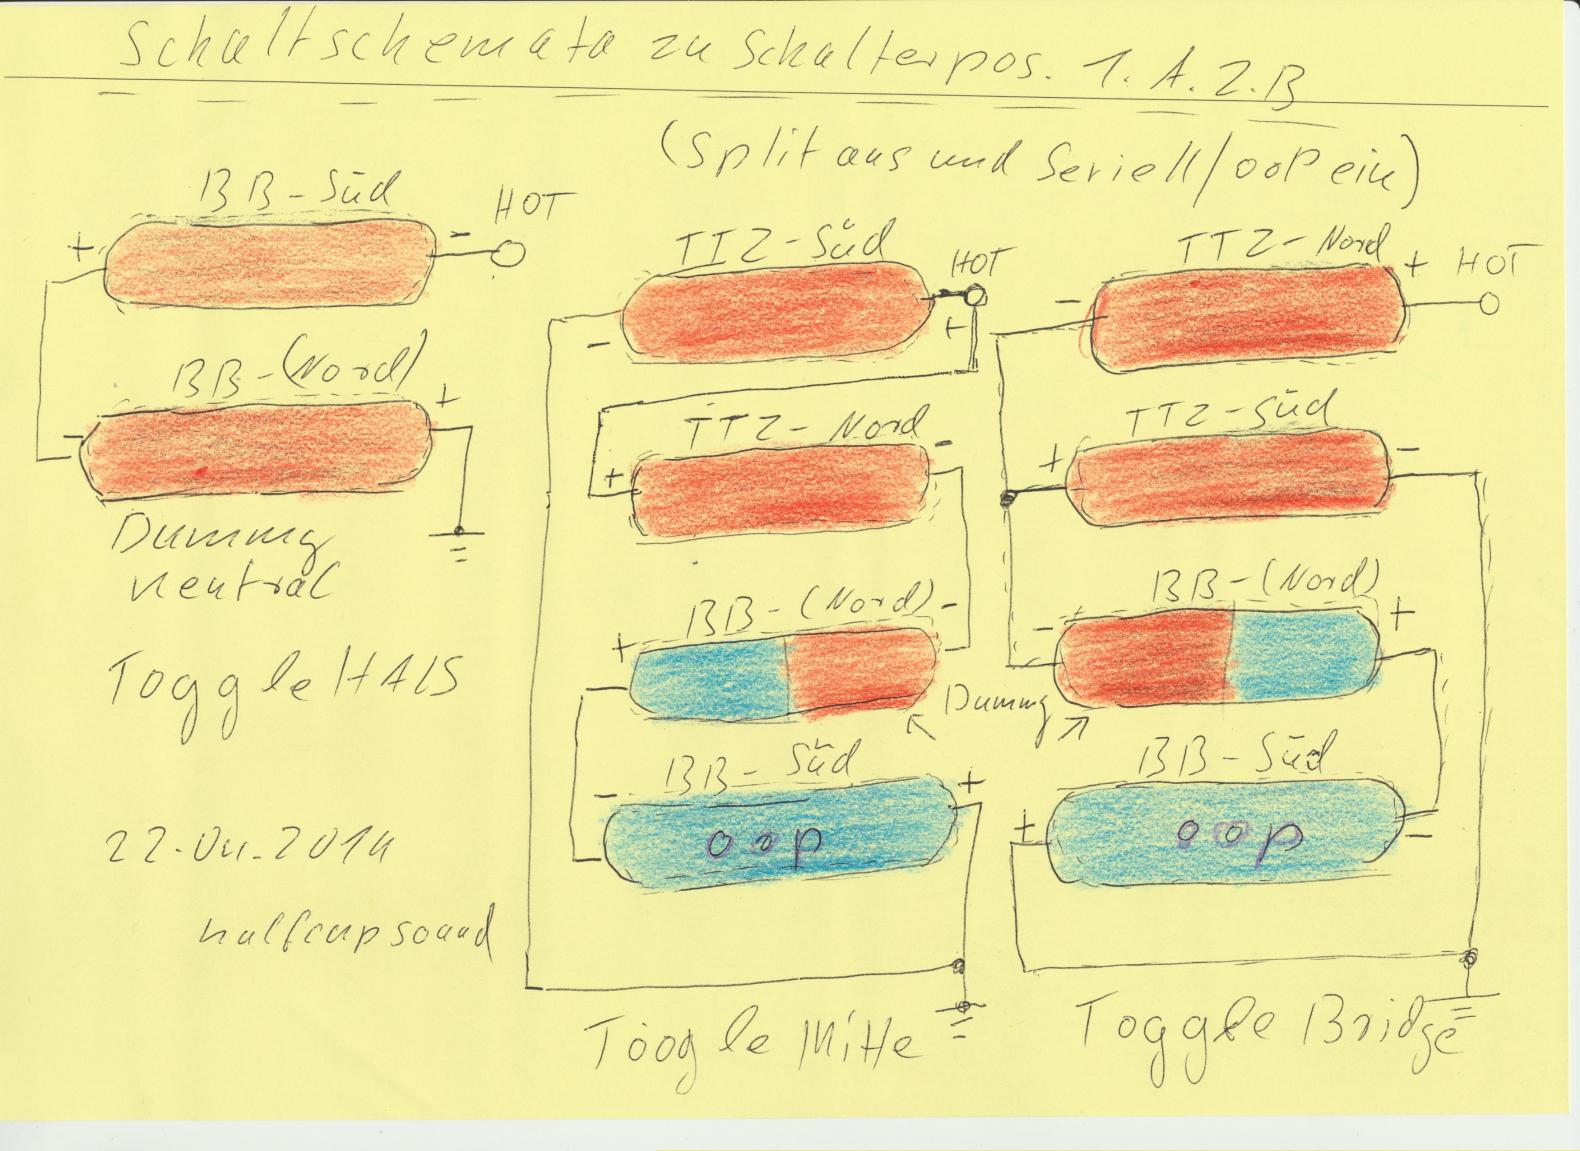 Schaltschemata zu Schalterpos. 1. A. 2. B
(Split aus und Seriell/oop ein)
BB-Süd
HOT
+
-
BB-(Nord)
-
+
Dummy
neutral
Toggle HALS
22.04.2014
TTZ-Süd
HOT
-
+
TTZ-Nord
+
-
BB-(Nord)
+
-
Dummy
BB-Süd
-
+
oop
Toogle Mitte
TTZ-Nord
-
+
HOT
TTZ-Süd
+
-
BB-(Nord)
-
+
BB-Süd
+
-
oop
Toggle Bridge